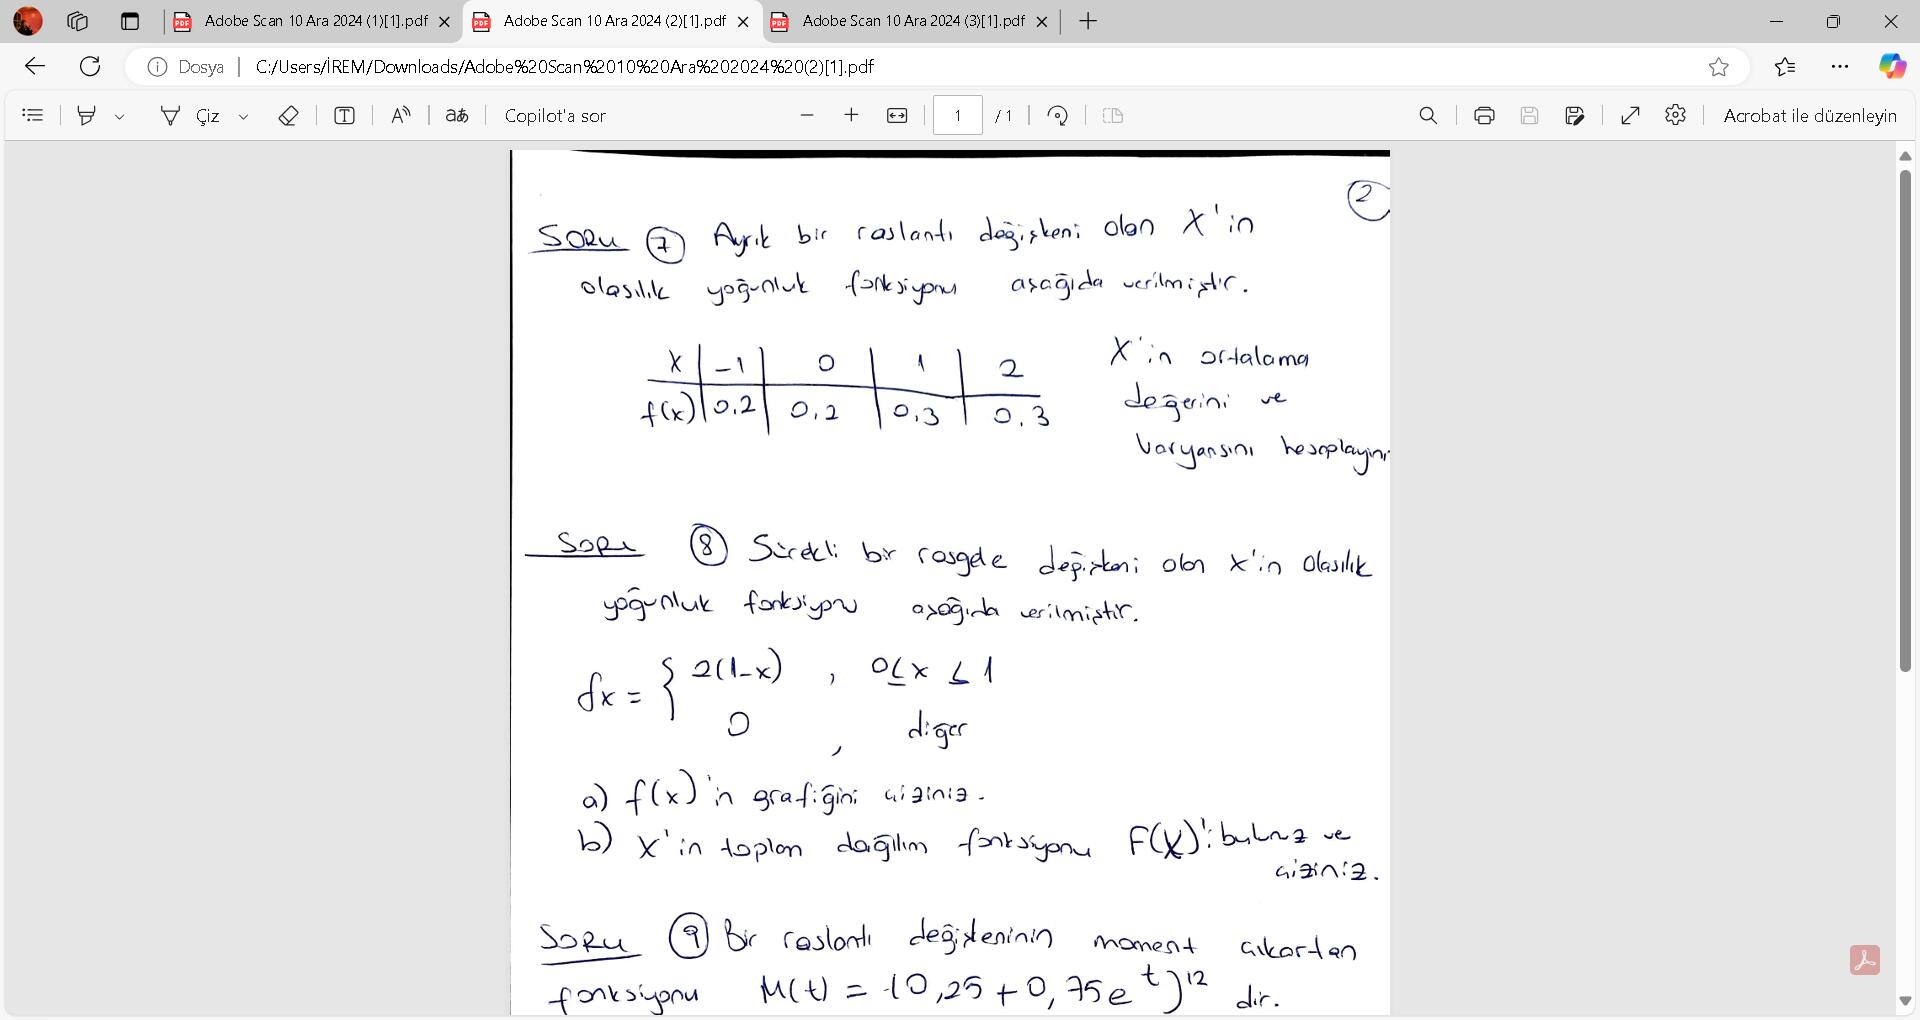 Adobe Scan 10 Ara 2024 (1)[1].pdf
Adobe Scan 10 Ara 2024 (2)[1].pdf
Adobe Scan 10 Ara 2024 (3)[1].pdf
Dosya
C:/Users/İREM/Downloads/Adobe%20Scan%2010%20Ara%202024%20(2)[1].pdf
Çiz
Copilot'a sor
1 /1
Acrobat ile düzenleyin
2
SORU 7 Ayrık bir raslantı değişkeni olan X'in
olasılık yoğunluk fonksiyonu aşağıda verilmiştir.
X -1 0 1 2
f(x) 0.2 0.2 0.3 0.3
X'in ortalama
değerini ve
varyansını hesaplayını
SORU 8 Sürekli bir rasgele değişkeni olan X'in olasılık
yoğunluk fonksiyonu aşağıda verilmiştir.
fx = { 2(1-x) , 0≤x≤1
0 , diğer
a) f(x)'in grafiğini çiziniz.
b) X'in toplam dağılım fonksiyonu F(X)'i bulunuz ve
çiziniz.
SORU 9 Bir raslantı değişkeninin moment çıkartan
fonksiyonu M(t) = (0,25+0,75e^t)^12 dir.